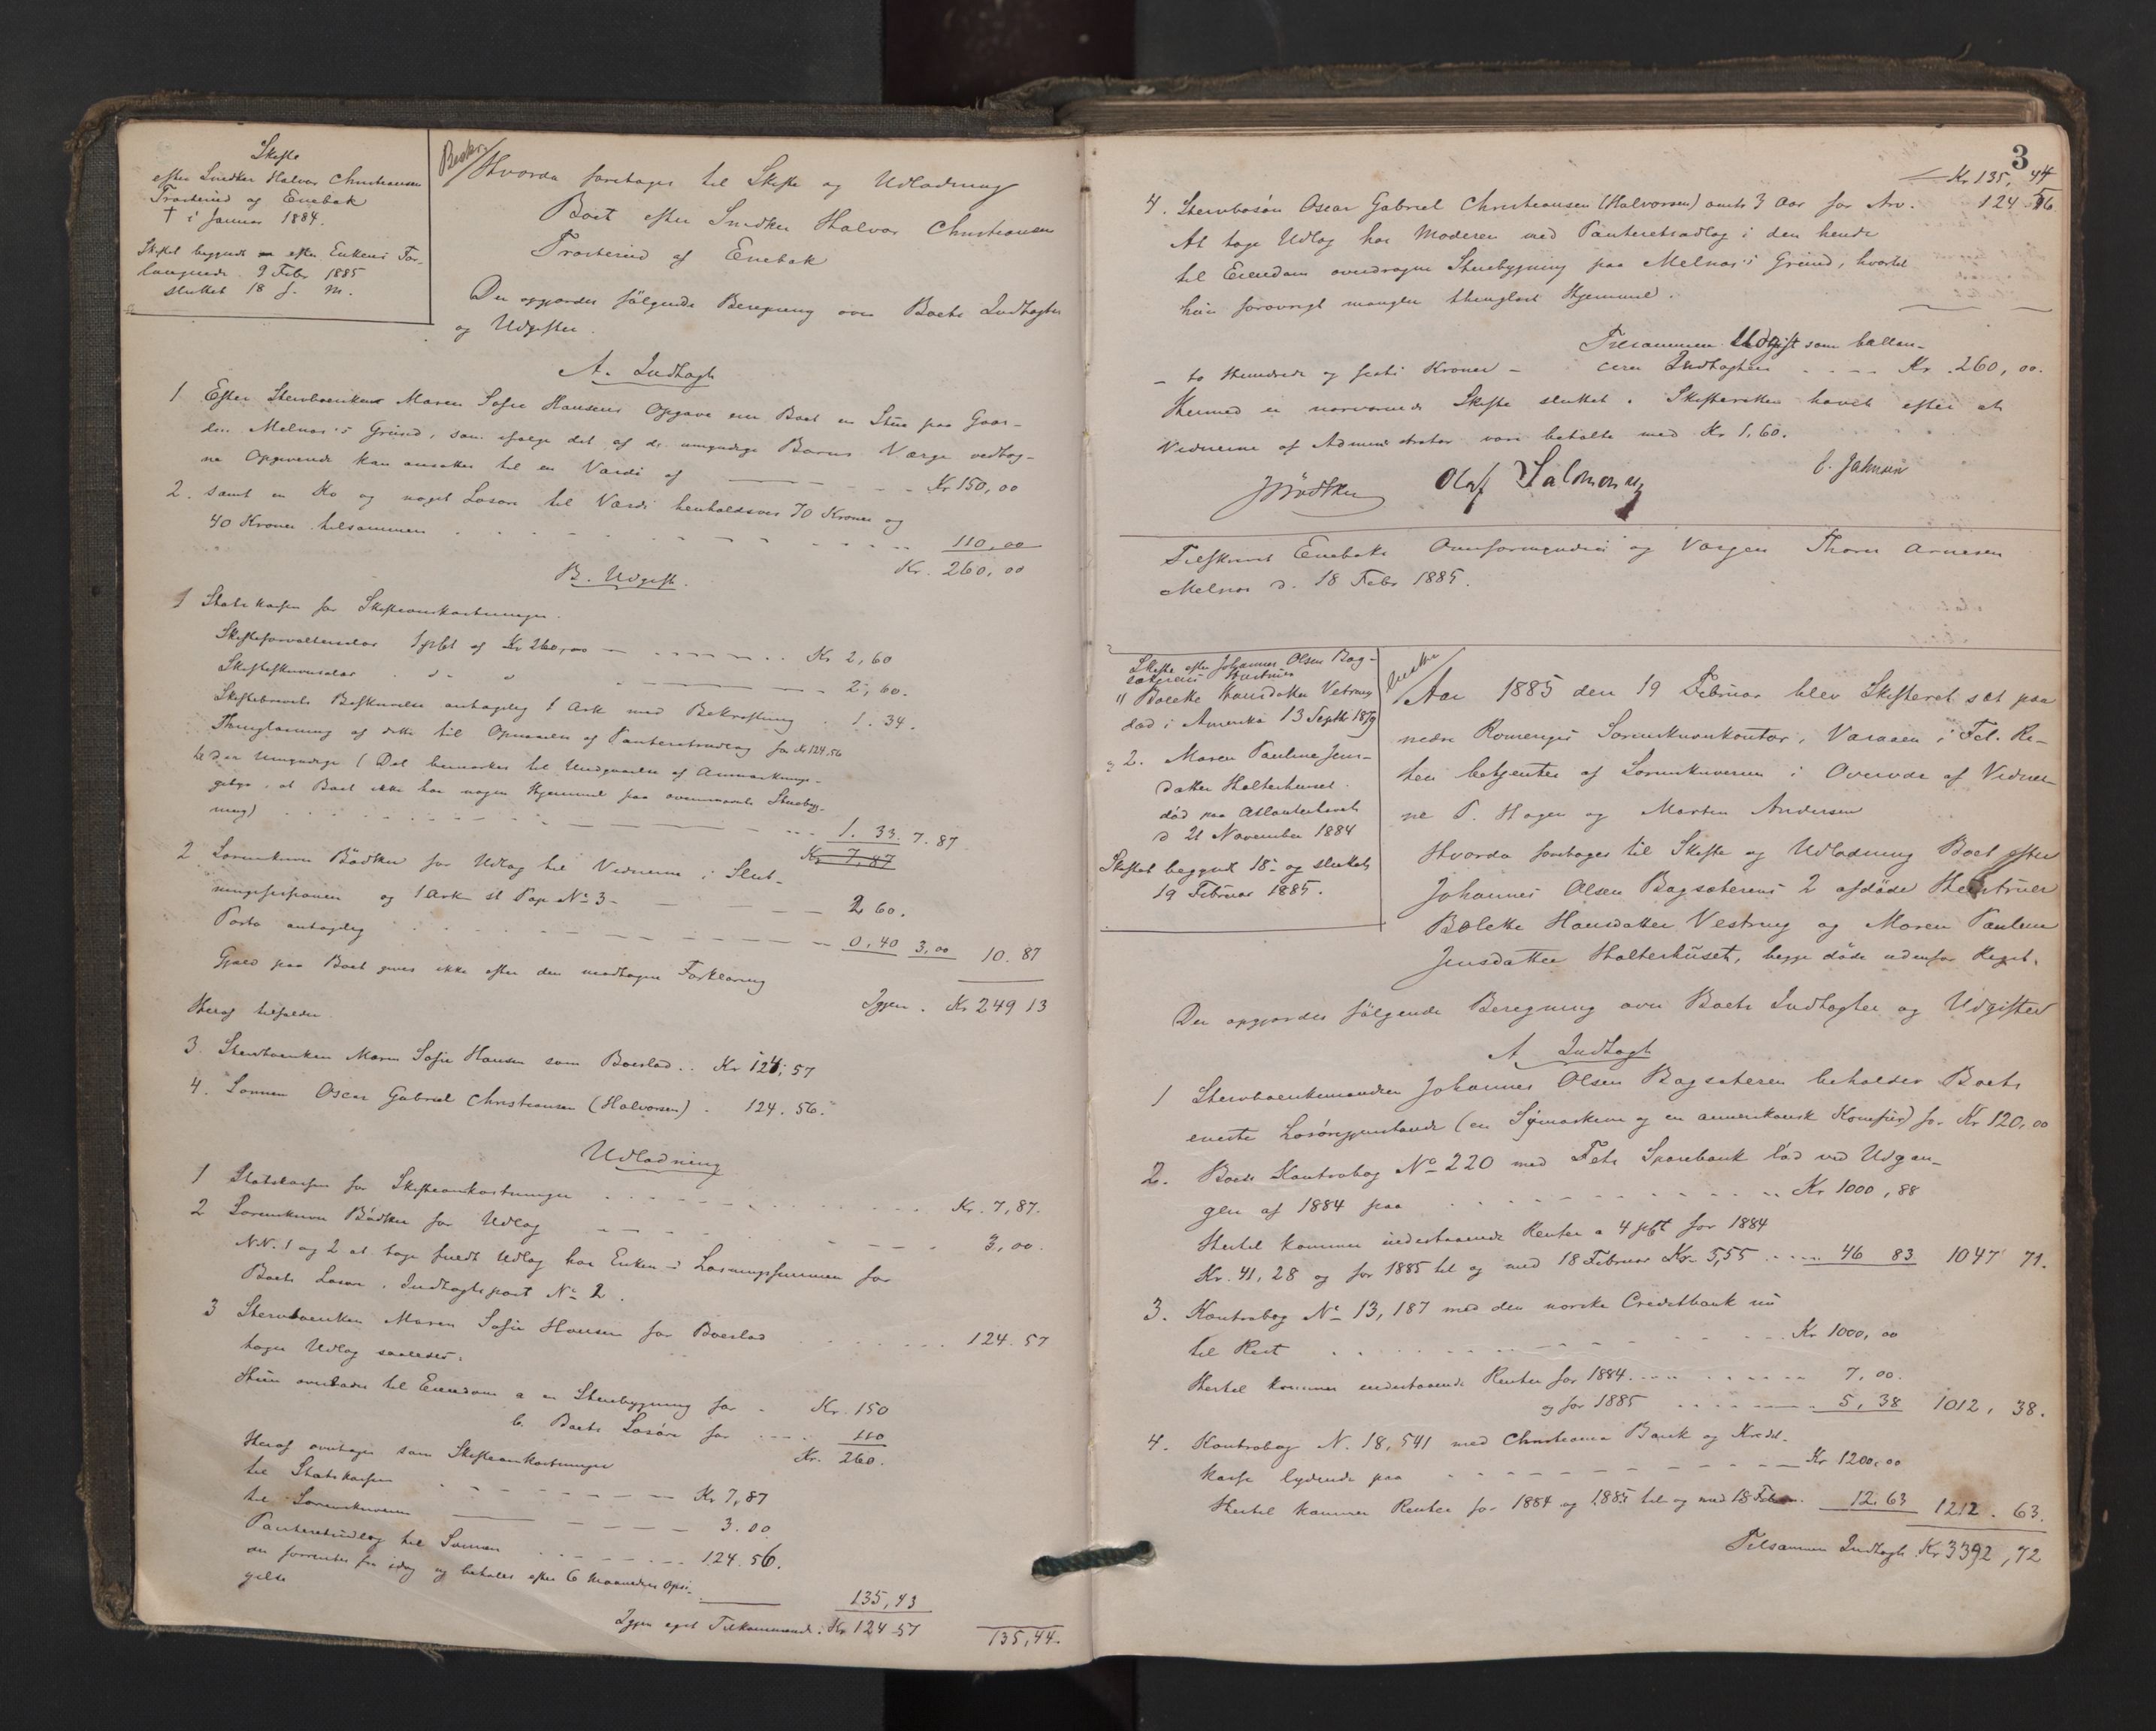 Skifte
efter Snedker Halvor Christiansen
Trosterud af Enebak
† i Januar 1884.
Skiftet begyndt efter Enkens For-
langende 9 Febr 1885
sluttet 18 s. M.
Beskr.
Hvorda foretages til Skifte og Udlodning
Boet efter Snedker Halvor Christiansen
Trosterud af Enebak
Der opgjordes følgende Beregning over Boets Indtægter
og Udgifter.
A. Indtægt
1 Efter Stervboenken Maren Sofie Hansens Opgave eier Boet en Stue paa Gaar-
den Melnæs's Grund, som ifølge det af de umyndige Barns Værge vedtag-
ne Opgivende kan ansættes til en Værdi af Kr 150,00
2. samt en Ko og noget Løsøre til Værdi henholdsvis 70 Kroner og
40 Kroner tilsammen 110,00
Kr. 260,00
B. Udgift.
1 Statskassen for Skifteomkostninger.
Skifteforvaltersalær 1 pCt af Kr 260,00 Kr 2,60
Skifteskriversalær " " 2,60.
Skiftebrevets Beskrivelse antagelig 1 Ark med Bekræftning 1.34.
Thinglæsning af dette til Opnaaelse af Panteretsudlæg for Kr 124.56
til den Umyndige (Det bemærkes til Undgaaelse af Anmærknings-
gebyr, at Boet ikke har nogen Hjemmel paa ovennævnte Stuebyg-
ning) 1.33. 7.87
Kr 7,87
2 Sorenskriver Bödtker for Udlæg til Vidnerne i Slut-
ningssessionen og 1 Ark st Pap No 3 2 60.
Porto antagelig 0,40 3,00 10.87
Gjæld paa Boet gives ikke efter den modtagne Forklaring
Igjen. Kr 249 13
Heraf tilfalder
3. Stervboenken Maren Sofie Hansen som Boeslod.. Kr 124,57
4. Sønnen Oscar Gabriel Christiansen (Halvorsen). 124.56.
Udlodning
1 Statskassen for Skifteomkostninger Kr. 7,87.
2 Sorenskriver Bödtker for Udlæg 3,00.
N.N. 1 og 2 at tage fuldt Udlæg hos Enken i Løsningssummen for
Boets Løsøre, Indtægtspost No 2.
3 Stervboenken Maren Sofie Hansen for Boeslod 124.57
tager Udlæg saaledes:
Hun overtager til Eiendom a en Stuebygning for Kr. 150
b. Boets Løsøre for 110
Kr. 260.
Heraf overtages som Skifteomkostninger
til Statskassen Kr 7,87
til Sorenskriveren 3.00
Panteretsudlæg til Sønnen 124.56.
der forrentes fra idag og betales efter 6 Maaneders Opsi-
gelse 135,43
Igjen eget Tilkommende: Kr 124 57 135,44.
3
Kr 135,44
4. Stervbosøn Oscar Gabriel Christiansen (Halvorsen) omtr 3 Aar for Arv. 124.56
At tage Udlæg hos Moderen med Panteretsudlæg i den hende
til Eiendom overdragne Stuebygning paa Melnæs's Grund, hvortil
hun forøvrigt mangler thinglæst Hjemmel.
Tilsammen Udgift som ballan-
- to Hundrede og sexti Kroner - cerer Indtægten Kr. 260,00.
Hermed er nærværende Skifte sluttet. Skifteretten hævet efter at
Vidnerne af Administrator vare betalte med Kr 1,60.
JBödtker Olaf Salmonsen C. Jahnsen
Tilskrevet Enebaks Overformynderi og Værgen Thorer Arnesen
Melnæs d. 18 Febr 1885.
Skifte efter Johannes Olsen Bag-
sæterens Hustruer
1 Bolette Hansdatter Vestrug
død i Amerika 13 Septbr 1879
2. Maren Pauline Jens-
datter Holterhuset.
død paa Atlanterhavet
d 21 November 1884
Skiftet begyndt 18- og sluttet
19 Februar 1885.
Aar 1885 den 19 Februar blev Skifteret sat paa
nedre Romeriges Sorenskriverkontor, Varaaen i Fet. Ret-
ten betjentes af Sorenskriveren i Overvær af Vidner-
ne P. Hagen og Morten Andersen
Hvorda foretages til Skifte og Udlodning Boet efter
Johannes Olsen Bagsæterens 2 afdøde Hustruer
Bolette Hansdatter Vestrug og Maren Pauline
Jensdatter Holterhuset, begge døde udenfor Riget.
Der opgjordes følgende Beregning over Boets Indtægter og Udgifter
A Indtægt
1 Stervboenkemanden Johannes Olsen Bagsæteren beholder Boets
eneste Løsøregjenstande (en Symaskine og en amerikansk Komfur) for Kr 120,00
2. Boets Kontrabog No 220 med Fets Sparebank lød ved Udgan-
gen af 1884 paa Kr 1000,88
Hertil kommer indestaaende Renter a 4 pCt for 1884
Kr. 41,28 og for 1885 til og med 18 Februar Kr 5,55 46 83 1047 71.
3. Kontrabog No 13,187 med den norske Creditbank nu
til Rest Kr 1000,00
Hertil kommer indestaaende Renter for 1884 7,00.
og for 1885 5,38 1012,38.
4. Kontrabog N. 18,541 med Christiania Bank og Kredit-
kasse lydende paa Kr 1200,00
Hertil kommer Renter for 1884 og 1885 til og med 18 Febr. 12.63 1212.63.
Tilsammen Indtægt. Kr 3392,72